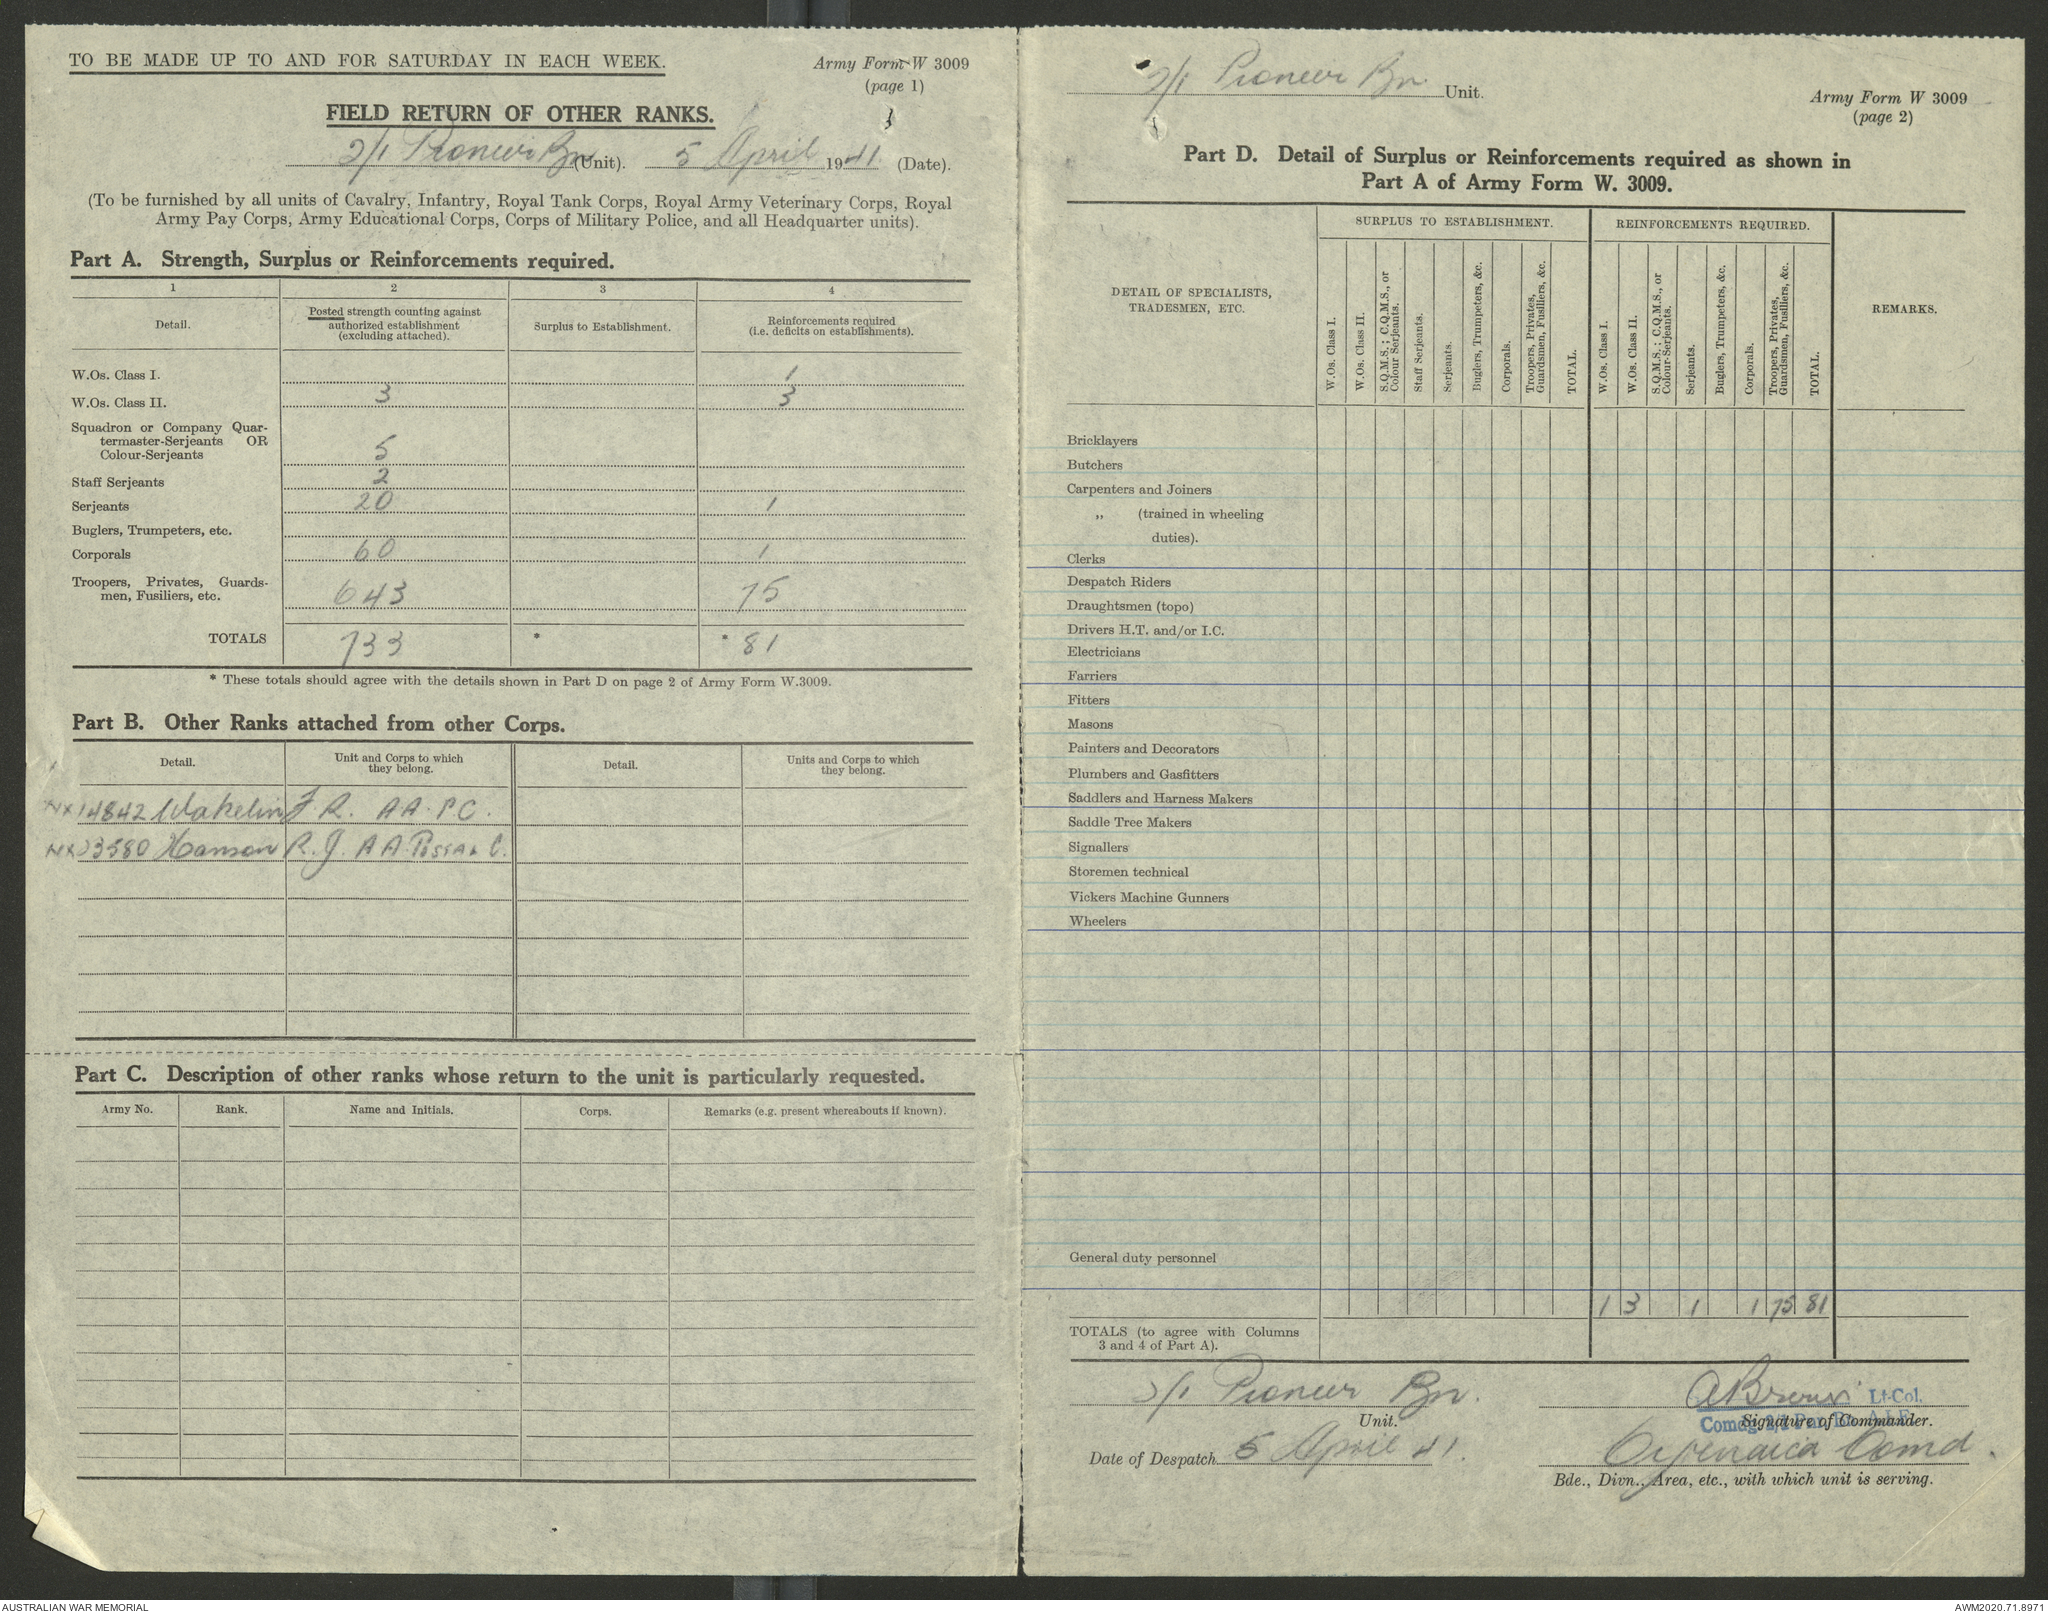 TO BE MADE UP TO AND FOR SATURDAY IN EACH WEEK.
Army Form W 3009
(page 1)
FIELD RETURN OF OTHER RANKS.
2/1 Pioneer Bn (Unit). 5 April 1941 (Date).
(To be furnished by all units of Cavalry, Infantry, Royal Tank Corps, Royal Army Veterinary Corps, Royal
Army Pay Corps, Army Educational Corps, Corps of Military Police, and all Headquarter units).
Part A. Strength, Surplus or Reinforcements required.
1 2 3 4
Detail.
Posted strength counting against
authorized establishment
(excluding attached).
Surplus to Establishment.
Reinforcements required
(i.e. deficits on establishments).
W.Os. Class I. 1
W.Os. Class II. 3 3
Squadron or Company Quar-
termaster-Serjeants OR
Colour-Serjeants 5
Staff Serjeants 2
Serjeants 20 1
Buglers, Trumpeters, etc.
Corporals 60 1
Troopers, Privates, Guards-
men, Fusiliers, etc. 643 75
TOTALS 733 * * 81
* These totals should agree with the details shown in Part D on page 2 of Army Form W.3009.
Part B. Other Ranks attached from other Corps.
Detail.
Unit and Corps to which
they belong.
Detail.
Units and Corps to which
they belong.
NX14842 Wakelin F.R. A A P C.
Hanson R. J. A A
Part C. Description of other ranks whose return to the unit is particularly requested.
Army No. Rank. Name and Initials. Corps. Remarks (e.g. present whereabouts if known).
2/1 Pioneer Bn. Unit.
Army Form W 3009
(page 2)
Part D. Detail of Surplus or Reinforcements required as shown in
Part A of Army Form W. 3009.
DETAIL OF SPECIALISTS,
TRADESMEN, ETC.
SURPLUS TO ESTABLISHMENT.
W.Os. Class I.
W.Os. Class II.
S.Q.M.S.; C.Q.M.S., or
Colour Serjeants.
Staff Serjeants.
Serjeants.
Buglers, Trumpeters, &c.
Corporals.
Troopers, Privates,
Guardsmen, Fusiliers, &c.
TOTAL.
REINFORCEMENTS REQUIRED.
W.Os. Class I.
W.Os. Class II.
S.Q.M.S.; C.Q.M.S., or
Colour-Serjeants.
Serjeants.
Buglers, Trumpeters, &c.
Corporals.
Troopers, Privates,
Guardsmen, Fusiliers, &c.
TOTAL.
REMARKS.
Bricklayers
Butchers
Carpenters and Joiners
„ (trained in wheeling
duties).
Clerks
Despatch Riders
Draughtsmen (topo)
Drivers H.T. and/or I.C.
Electricians
Farriers
Fitters
Masons
Painters and Decorators
Plumbers and Gasfitters
Saddlers and Harness Makers
Saddle Tree Makers
Signallers
Storemen technical
Vickers Machine Gunners
Wheelers
General duty personnel
1 3 1 1 75 81
TOTALS (to agree with Columns
3 and 4 of Part A).
2/1 Pioneer Bn.
Unit.
ABrown Lt-Col.
Comdg 2/1 Pnr. Bn. A.I.F.
Signature of Commander.
Date of Despatch 5 April 41.
Cyrenaica Comd.
Bde., Divn., Area, etc., with which unit is serving.
AUSTRALIAN WAR MEMORIAL
AWM2020.71.8971